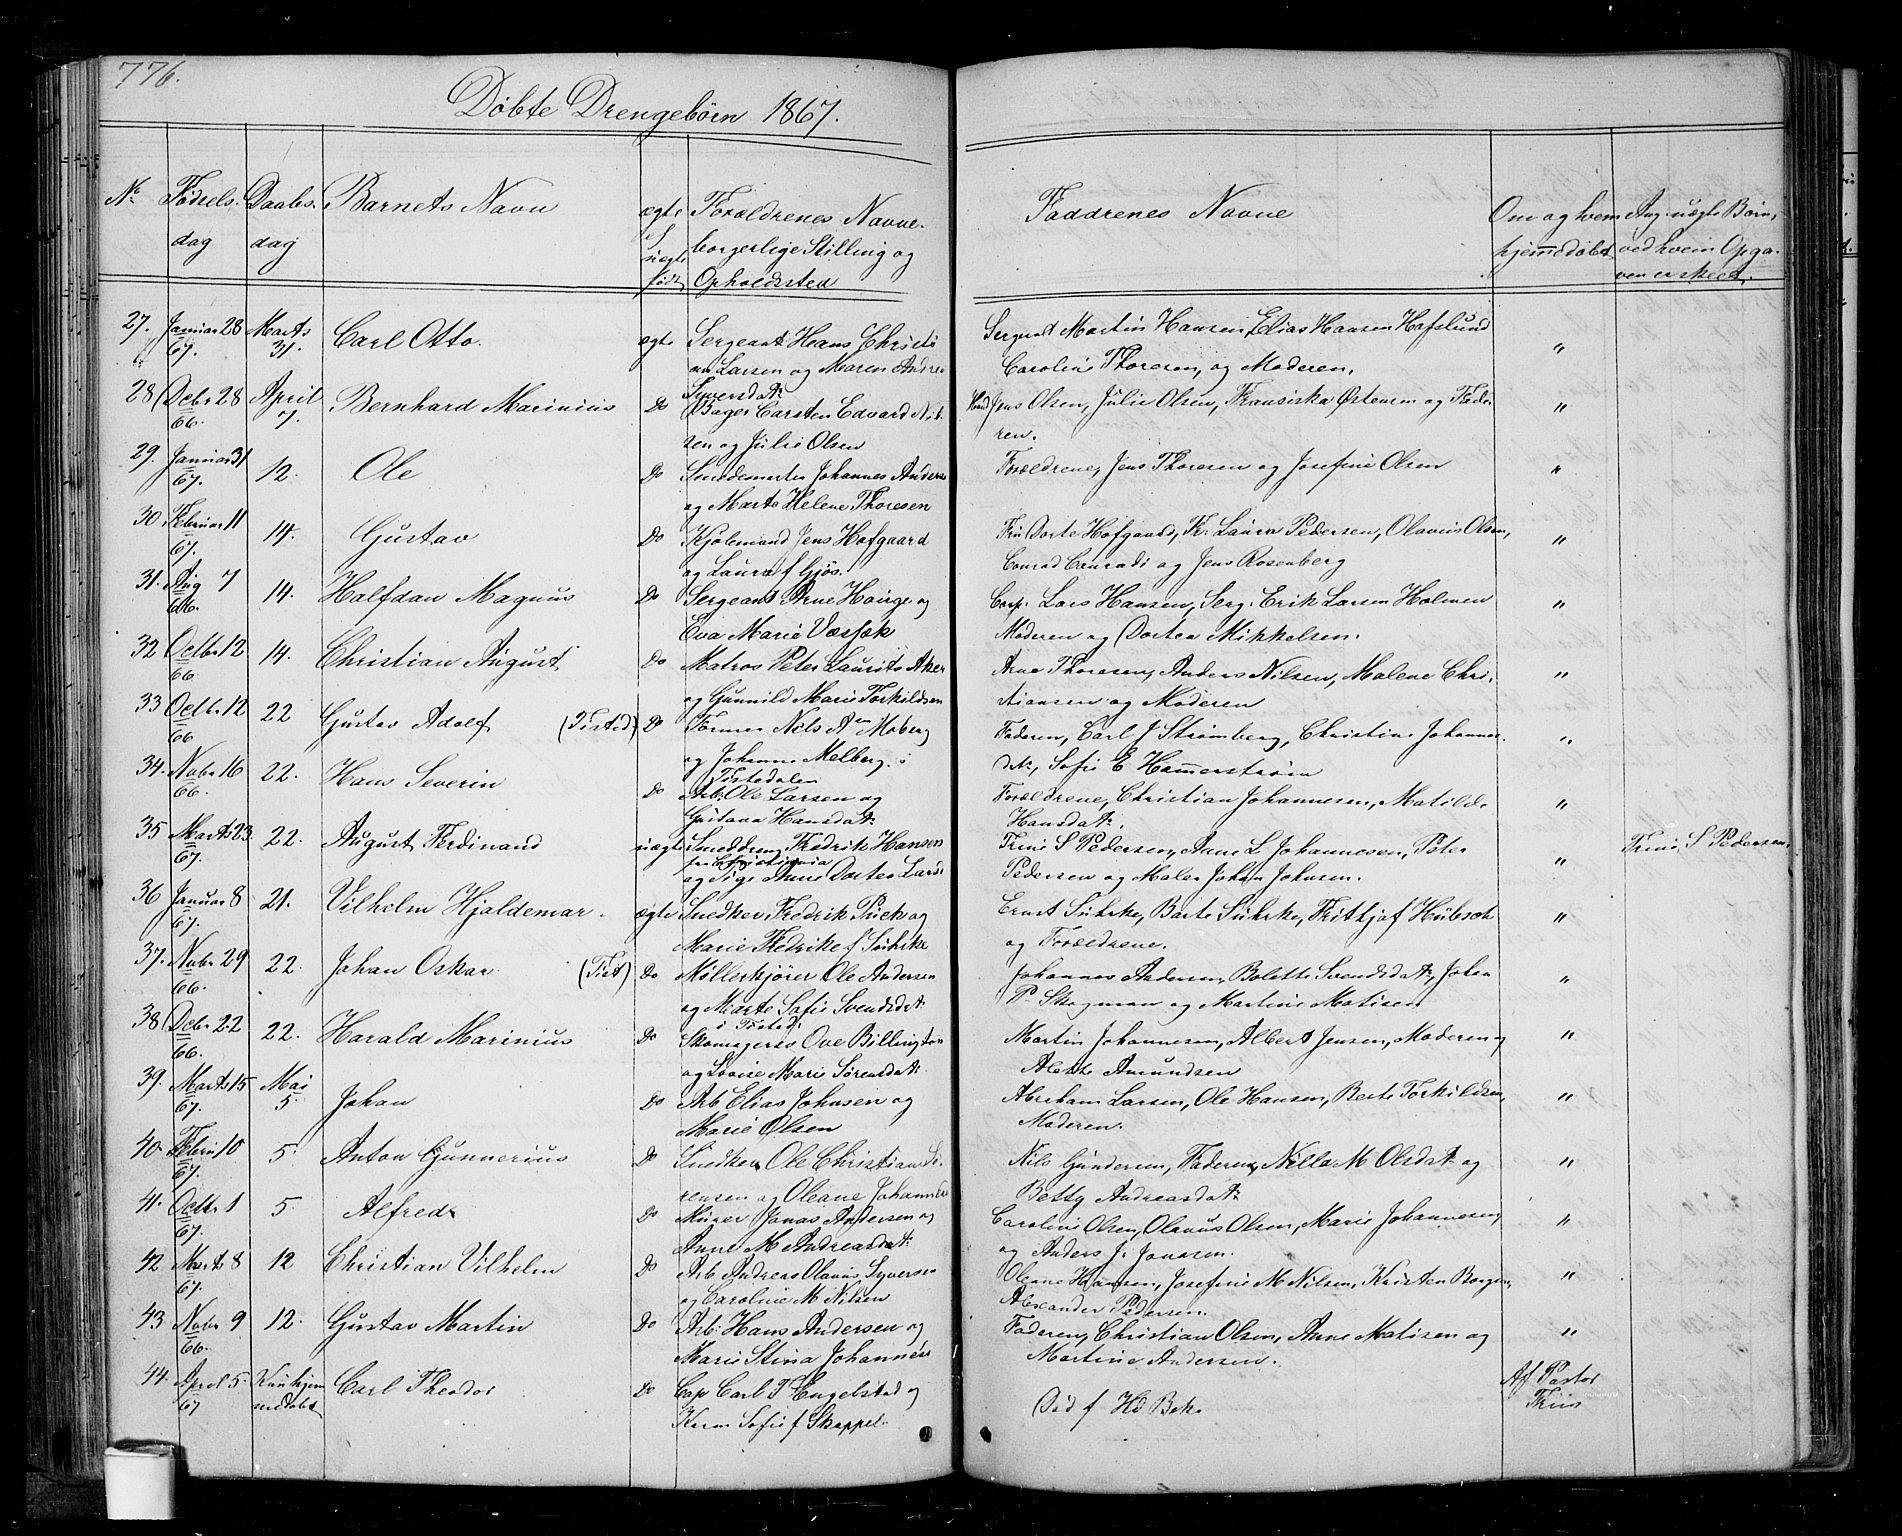 776.
Döbte Drengebörn 1867.
No Födsels- dag Daabs- dag Barnets Navn ægte el. uægte födt Forældrenes Navne borgerlige Stilling og Opholdssted Faddrenes Navne Om og hvem hjemmedöbt Ang. uægte Börn, ved hvem Opgaven er skeet.
27. Januar 28 67. Marts 31. Carl Otto. ægte Sergeant Hans Christian Larsen og Maren Andrea Syversdatr Sergeant Martin Hansen, Elias Hansen Hafslund
Caroline Thoresen, og Moderen. "
28 Decbr 28 66. April 7. Bernhard Marinius Do Bager Carsten Edvard
og Julie Olsen Jens Olsen, Julie Olsen, Fransiska Östensen og Faderen. "
29. Januar 31 67. 12. Ole Do Smedemester Johannes Andersen
og Marte Helene Thoresen Forældrene, Jens Thoresen og Josefine Olsen "
30 Februar 11 67. 14. Gustav Do Kjöbmand Jens Hofgaard
og Laura f Gjös. Fru Dorte Hofgaard, Fr. Laura Pedersen, Olavus Olsen,
Conrad Conradi og Jens Rosenberg "
31. Aug 7 66. 14. Halfdan Magnus Do Sergeant Arne Hauge og
Eva Marie Corp. Lars Hansen, Serg. Erik Larsen Holmen
Moderen og Dortea Mikkelsen. "
32 Octbr 12 66 14. Christian August Do Matros Peter Laurits Aker
og Gunnild Marie Torkildsen Arne Thoresen, Anders Nilsen, Malene Christiansen og Moderen "
33 Octbr 12 66 22 Gustav Adolf (Tisted) Do Former Nels An Moberg
og Johanne Melberg i Tistedalen Faderen, Carl J Strömberg, Christine Johannesdatr, Sofie E Hammerström "
34. Novbr 16 66. 22. Hans Severin Do Arb. Ole Larsen og
Gustava Hansdatr Forældrene, Christian Johannesen, Matilde
Hansdatr. "
35 Marts 23 67. 22. August Ferdinand uægte Smeddreng Fredrik Hansen
fra Christiania
og Pige Anne Dortea Trine S Pedersen, Anne L Johannesen, Peter
Pedersen og Maler Johan Johnsen. " Trine S Pedersen
36 Januar 8 67. 21. Vilhelm Hjaldemar ægte Snedker Fredrik Pieck og
Marie Fredrike f Suhrke Ernst Suhrke, Börte Suhrke, Frithjof Hübsch
og Forældrene. "
37. Novbr 29 66. 22. Johan Oskar (Tist) Do Möllerkjörer Ole Andersen
og Marte Sofie Svendsdatr
i Tisted. Johannes Andersen, Bolette Svendsdatr, Johan
P. Skogman og Martine Matisen "
38 Decbr 22 66. 22. Harald Marinius Do Skomagersv Ove Billington
og Lovise Marie Sörensdatr Martin Johannesen, Albert Jensen, Moderen og
Alette Amundsen "
39. Marts 15 67. Mai 5. Johan Do Arb Elias Johnsen og
Marie Olsen Abraham Larsen, Ole Hansen, Berte Torkildsen,
Moderen. "
40. Febru 10 67. 5. Anton Gunnerius Do Snedker Ole Christian Sörensen og Oleane Johannes Nils Gundersen, Faderen, Nilla M Olsdatr og
Betty Andreasdatr "
41. Octbr 1 67. 5 Alfred Do Murer Jonas Andersen og
Anne M Andreasdatr Caroline Olsen, Olavus Olsen, Marie Johannesen,
og Anders J. Jonasen. "
42 Marts 8 67. 12 Christian Vilhelm Do Arb Andreas Olavus Syversen
og Caroline M Nilsen Oleane Hansen, Josefine M Nilsen, Kristen Borgen,
Alexander Pedersen. "
43. Novbr 9 66. 12. Gustav Martin Do Arb. Hans Andersen og
Marie Stina Johannes Faderen, Christian Olsen, Anne Matisen og
Martine Andersen. "
44. April 5. 67 Kun hjemmedöbt Carl Theodor Do Cap Carl T Engelstad og
Karen Sofie f Skappel Död f Hd Bek. Af Pastor
Friis